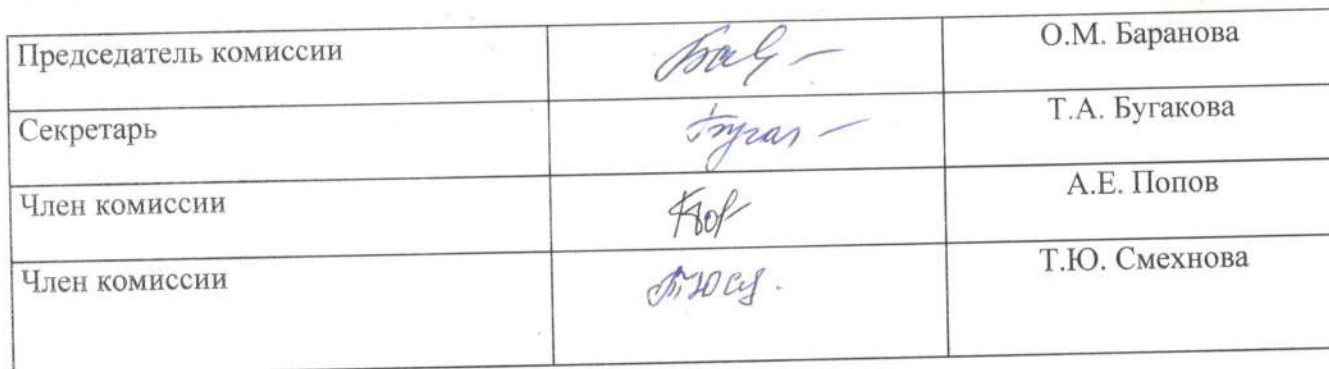 Председатель комиссии О.М. Баранова
Секретарь Т.А. Бугакова
Член комиссии А.Е. Попов
Член комиссии Т.Ю. Смехнова